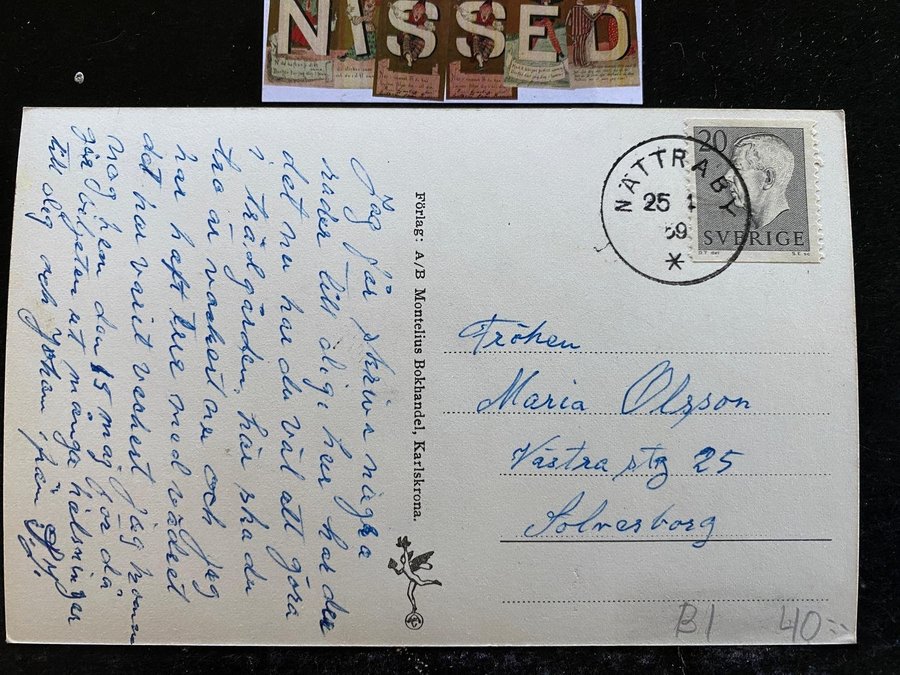 NISSED
Jag får skriva några
rader till dig, hur har du
det nu har du väl att göra
i trädgården, här ska du
tro är vackert nu och jag
har haft tur med vädret
det har varit vackert jag kommer
nog hem den 15 maj Göa då
går biljeten ut många hälsningar
till dig och Johan, från
Förlag: A/B Montelius Bokhandel, Karlskrona.
NÄTTRABY
25
59
20
SVERIGE
Fröken
Maria Olsson
Västra stg 25
Sölvesborg
B1 40:-